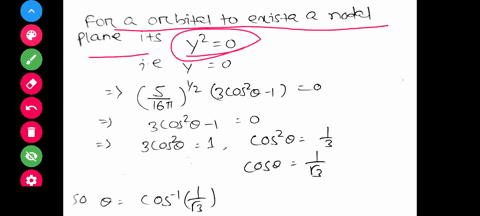 For a orbital to exist a nodal
plane its y² = 0
i.e y = 0
=> (5/16π)^1/2 (3cos²θ-1) = 0
=) 3cos²θ-1 = 0
=> 3cos²θ = 1, cos²θ = 1/3
cosθ = 1/√3
so θ = cos⁻¹(1/√3)